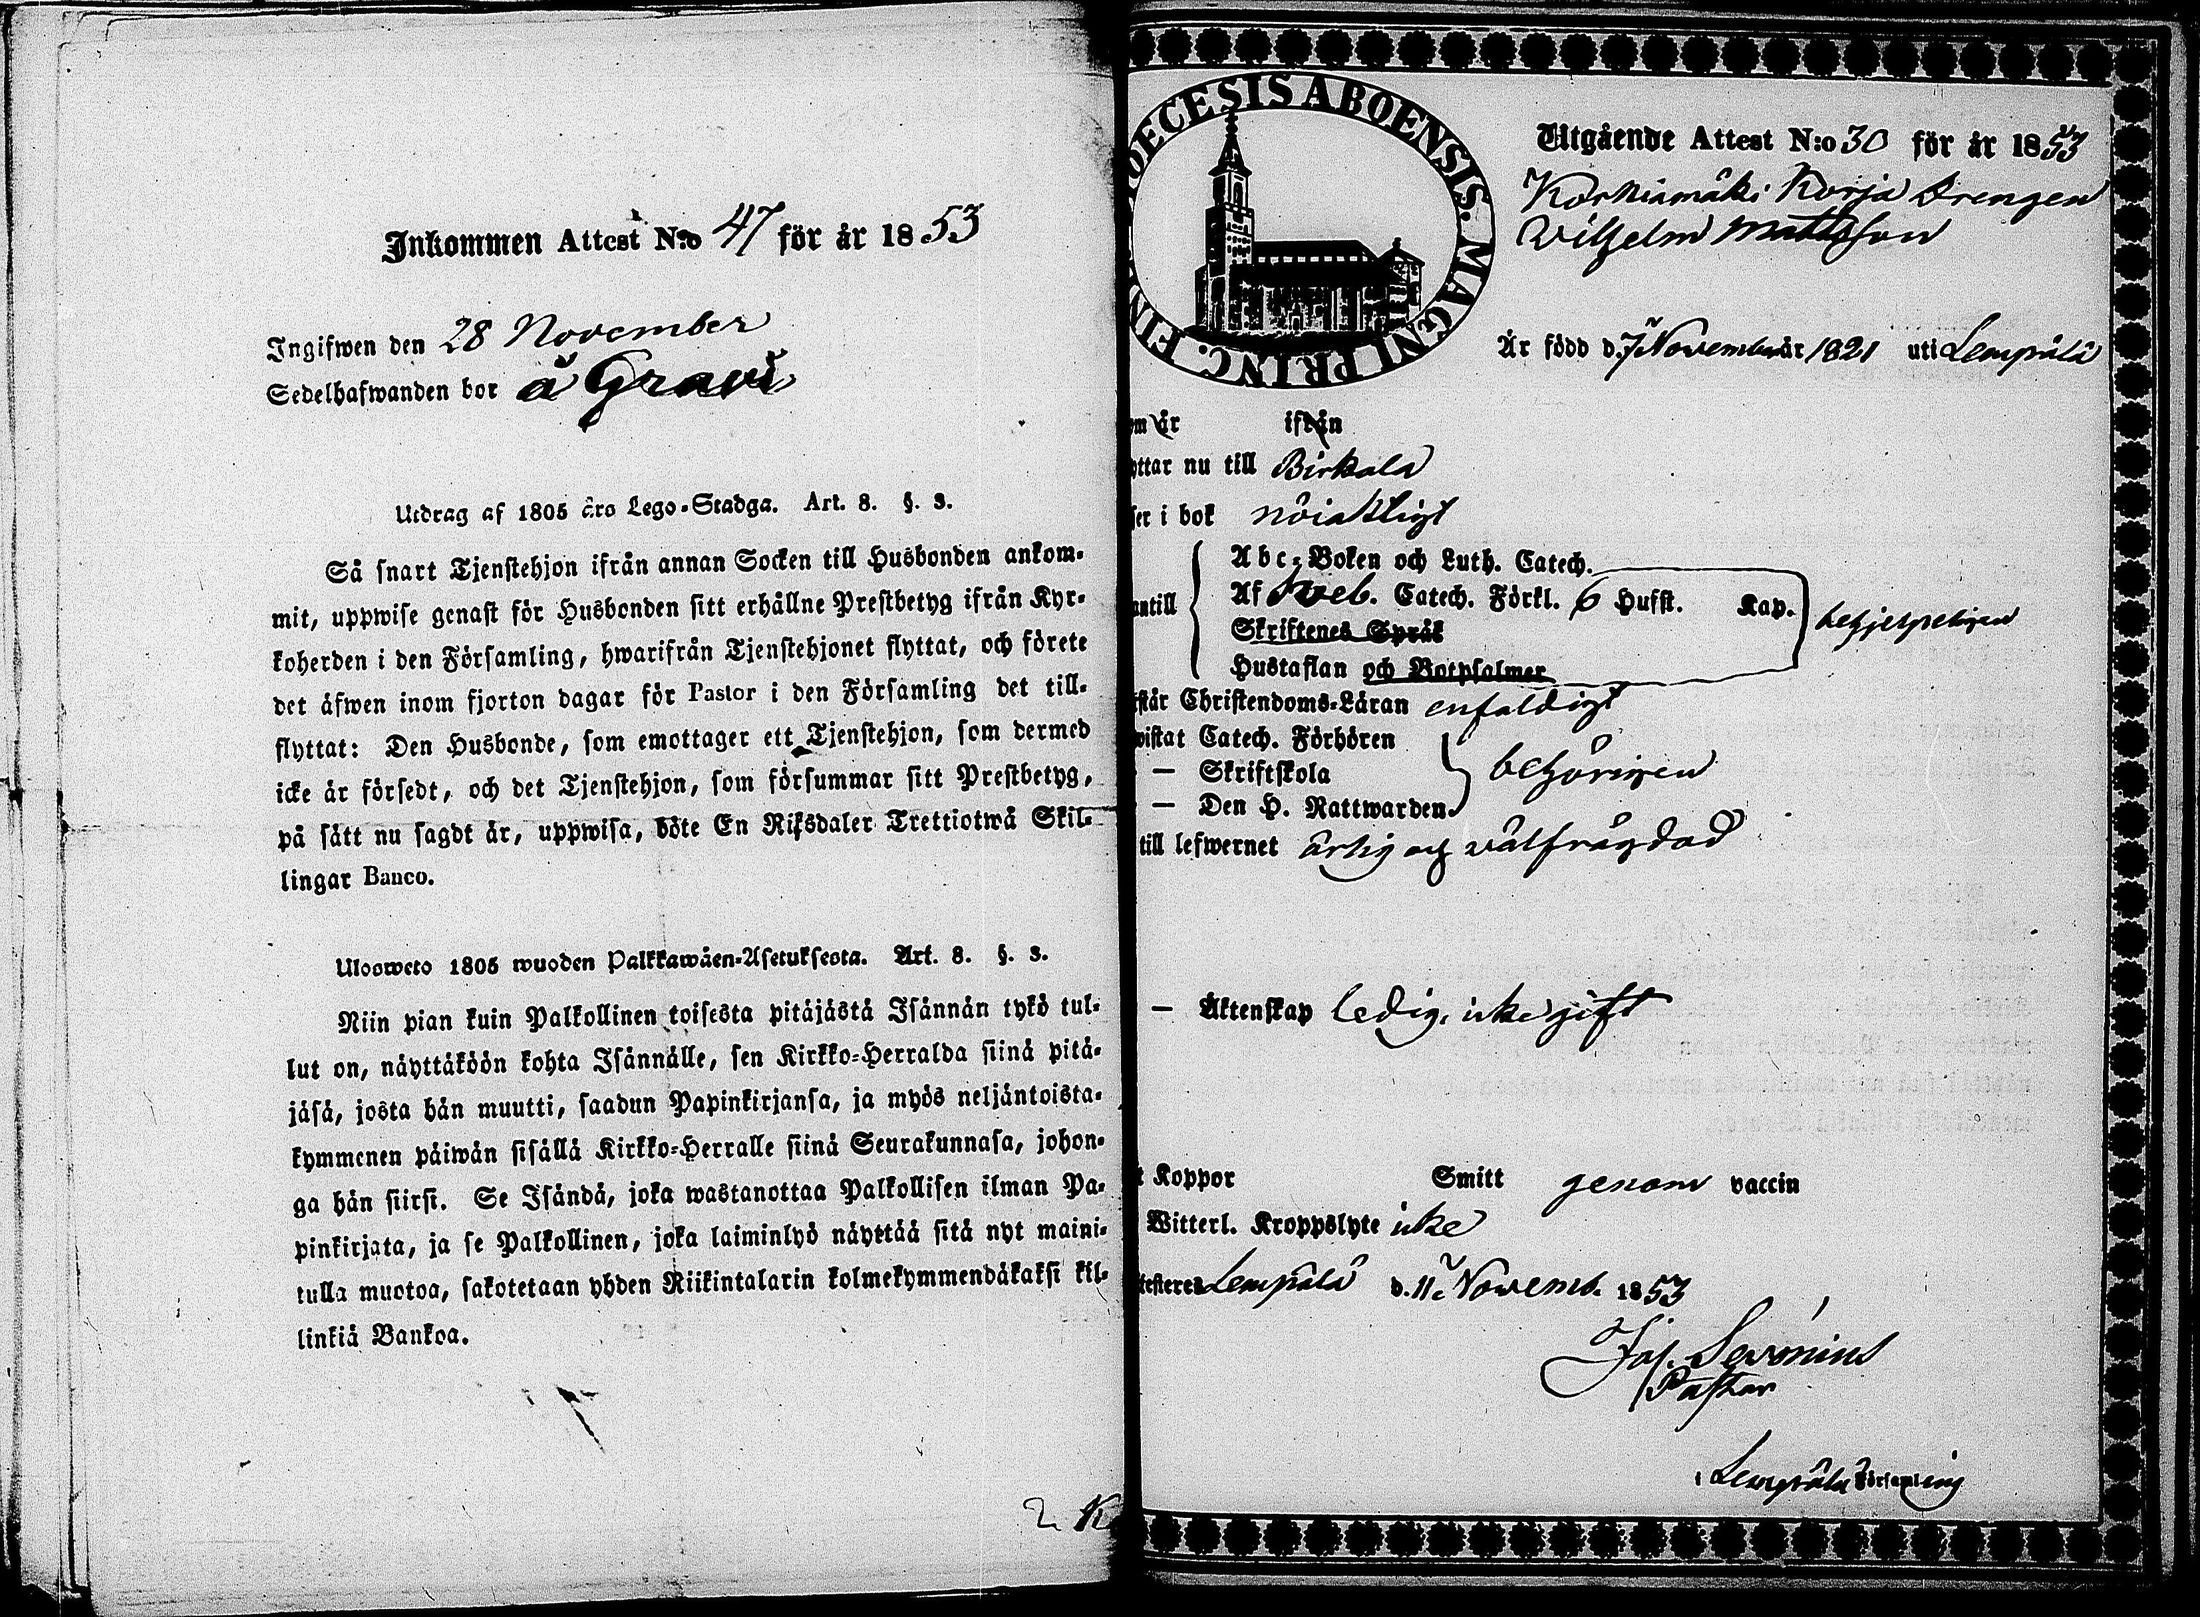 Inkommen Attest N:o 47 för år 1853
Ingifwen den 28 November
Sedelhafwanden bor å Gravi
Utdrag af 1805 års Lego-Stadga. Art. 8. §. 3.
Så snart Tjenstehjon ifrån annan Socken till Husbonden ankom-
mit, uppwise genast för Husbonden sitt erhållne Prestbetyg ifrån Kyr-
koherden i den Församling, hwarifrån Tjenstehjonet flyttat, och förete
det äfwen inom fjorton dagar för Pastor i den Församling det till-
flyttat: Den Husbonde, som emottager ett Tjenstehjon, som dermed
icke är försedt, och det Tjenstehjon, som försummar sitt Prestbetyg,
på sätt nu sagdt är, uppwisa, böte En Riksdaler Trettiotwå Skil-
lingar Banco.
Ulosweto 1805 wuoden Palkkawäen-Asetuksesta. Art. 8. §. 3.
Niin pian kuin Palkollinen toisesta pitäjästä Isännän tykö tul-
lut on, näyttäköön kohta Isännälle, sen Kirkko-Herralda siinä pitä-
jäsä, josta hän muutti, saadun Papinkirjansa, ja myös neljäntoista-
kymmenen päiwän sisällä Kirkko-Herralle siinä Seurakunnasa, johon-
ga hän siirsi. Se Isändä, joka wastanottaa Palkollisen ilman Pa-
pinkirjata, ja se Palkollinen, joka laiminlyö näyttää sitä nyt maini-
tulla muotoa, sakotetaan yhden Riikintalarin kolmekymmendäkaksi kil-
linkiä Bankoa.
2. K
DIOECESIS ABOENSIS. MAGNI PRINC. FIN
Utgående Attest N:o 30 för år 1853
Korkiamäki Korja Drengen
Wilhelm Mattsson
Är född d. 7 November år 1821 uti Lempälä
om år ifrån
yttar nu till Birkala
ser i bok nöjaktligt
antill
Abc-Boken och Luth. Catech.
Af Sveb. Catech. Förkl. 6 Hufst. Kap.
Skriftenes Språk
Hustaflan och Botpsalmer
rstår Christendoms-Läran enfaldigt
wistat Catech. Förhören
— Skriftskola behörigen
— Den H. Nattwarden
till lefwernet ärlig och välfrägdad
— Äktenskap ledig, icke gift
t Koppor Smitt genom vaccin
Witterl. Kroppslyte icke
testeres Lempälä d. 11 Novemb. 1853
Jos. Sevonius
Pastor
i Lempälä Församling